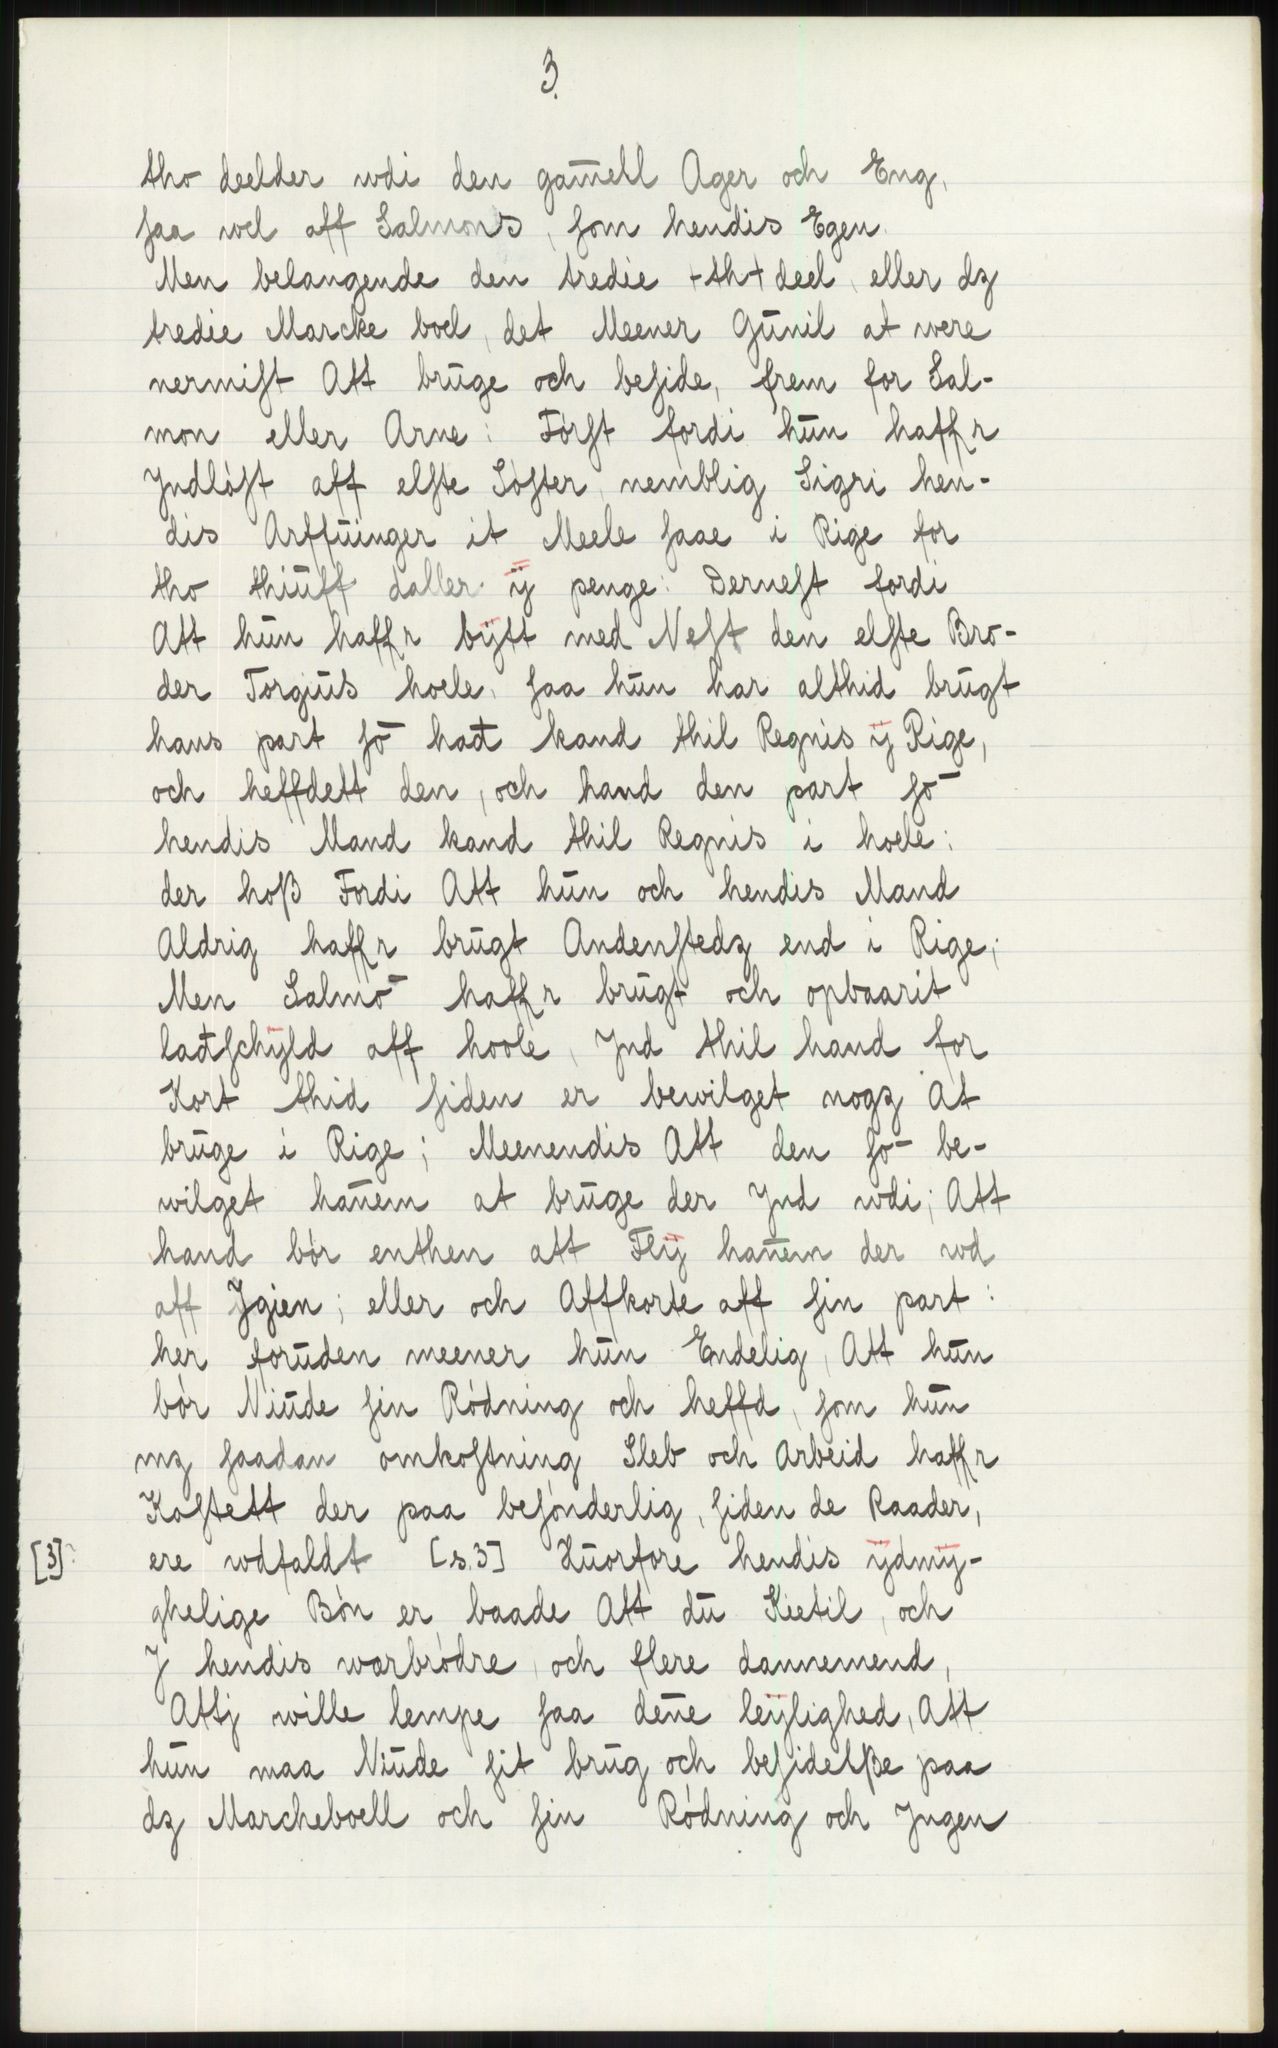 3.
tho deelder wdi den gam̄ell Ager och Eng,
saa wel aff Salmons, som hendis Egen.
Men belangende den tredie +th+ deel, eller dz
tredie Marcke boel, det Meener Gūnil at were
nermist Att brūge och beside, frem for Sal-
mon eller Arne: Först fordi hūn haffr
Jndlöst aff elste Söster, nemblig Sigri hen-
dis Arffūinger it Meele saae i Rige for
tho thiūff daller ÿ penge: Dernest fordi
Att hūn haffr bÿtt med Nest den elste Bro-
der Torgiūs hoele, saa hūn har althid brūgt
hans part so̅ had̄ kand thil Regnis ÿ Rige,
och heffdett den, och hand den part so̅
hendis Mand kand thil Regnis i hoele:
der hoß Fordi Att hūn och hendis Mand
Aldrig haffr brūgt Andenstedz end i Rige;
Men Salmo̅ haffr brūgt och opbaarit
lad̄schÿld aff hoole, Jnd thil hand for
Kort thid siden er bewilget nogz At
brūge i Rige; Meenendis Att den so̅ be-
wilget han̄em at brūge der Jnd wdi; Att
hand bör enthen att Flÿ han̄em der wd
aff Jgien; eller och Affkorte aff sin part:
her forūden meener hūn Endelig, Att hūn
bör Niūde sin Rödning och heffd, som hūn
mz saadan omkostning Sleb och Arbeid haffr
Kostett der paa besönderlig, siden de Raader,
[3] ere wdfaldt [s.3] Hūorfore hendis ÿdmÿ-
ghelige Bön er, baade Att dū Kietil, och
J hendis warbrödre, och flere dannemend,
Attj wille lempe saa den̄e leÿlighed, Att
hūn maa Niūde sit brūg och besidelße paa
dz Marcheboell och sin Rödning och Jngen